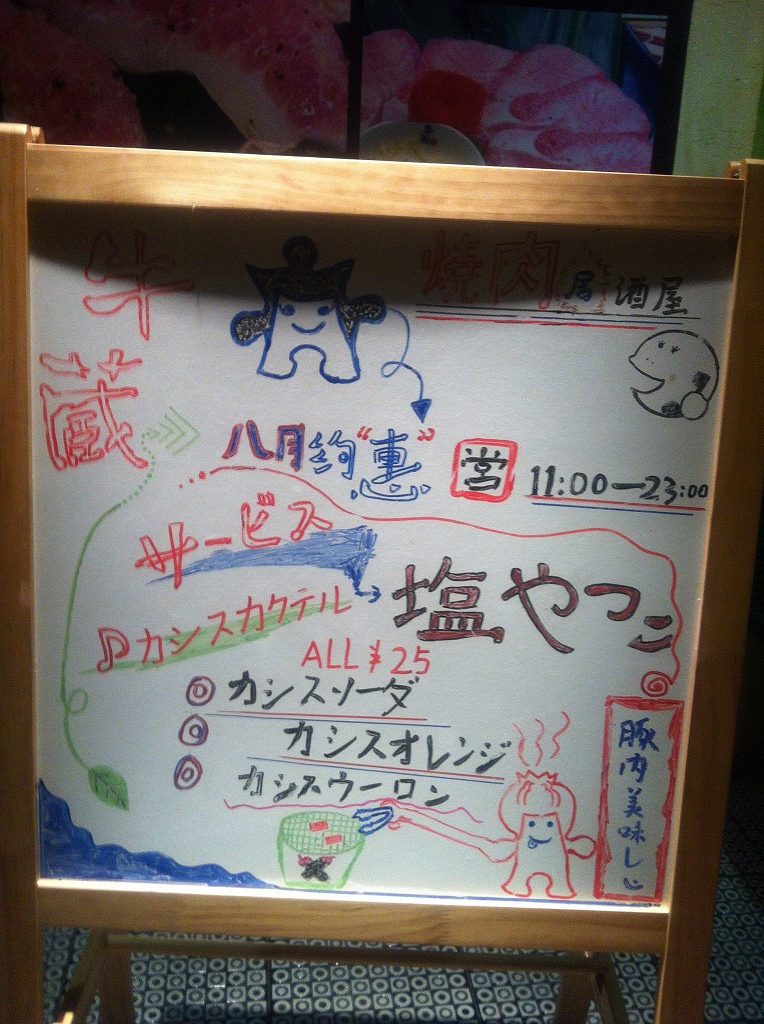 牛蔵
焼肉居酒屋
八月約“惠”
営 11:00—23:00
サービス
塩やっこ
♪カシスカクテル
ALL ¥25
◎カシスソーダ
◎カシスオレンジ
◎カシスウーロン
豚肉美味しい